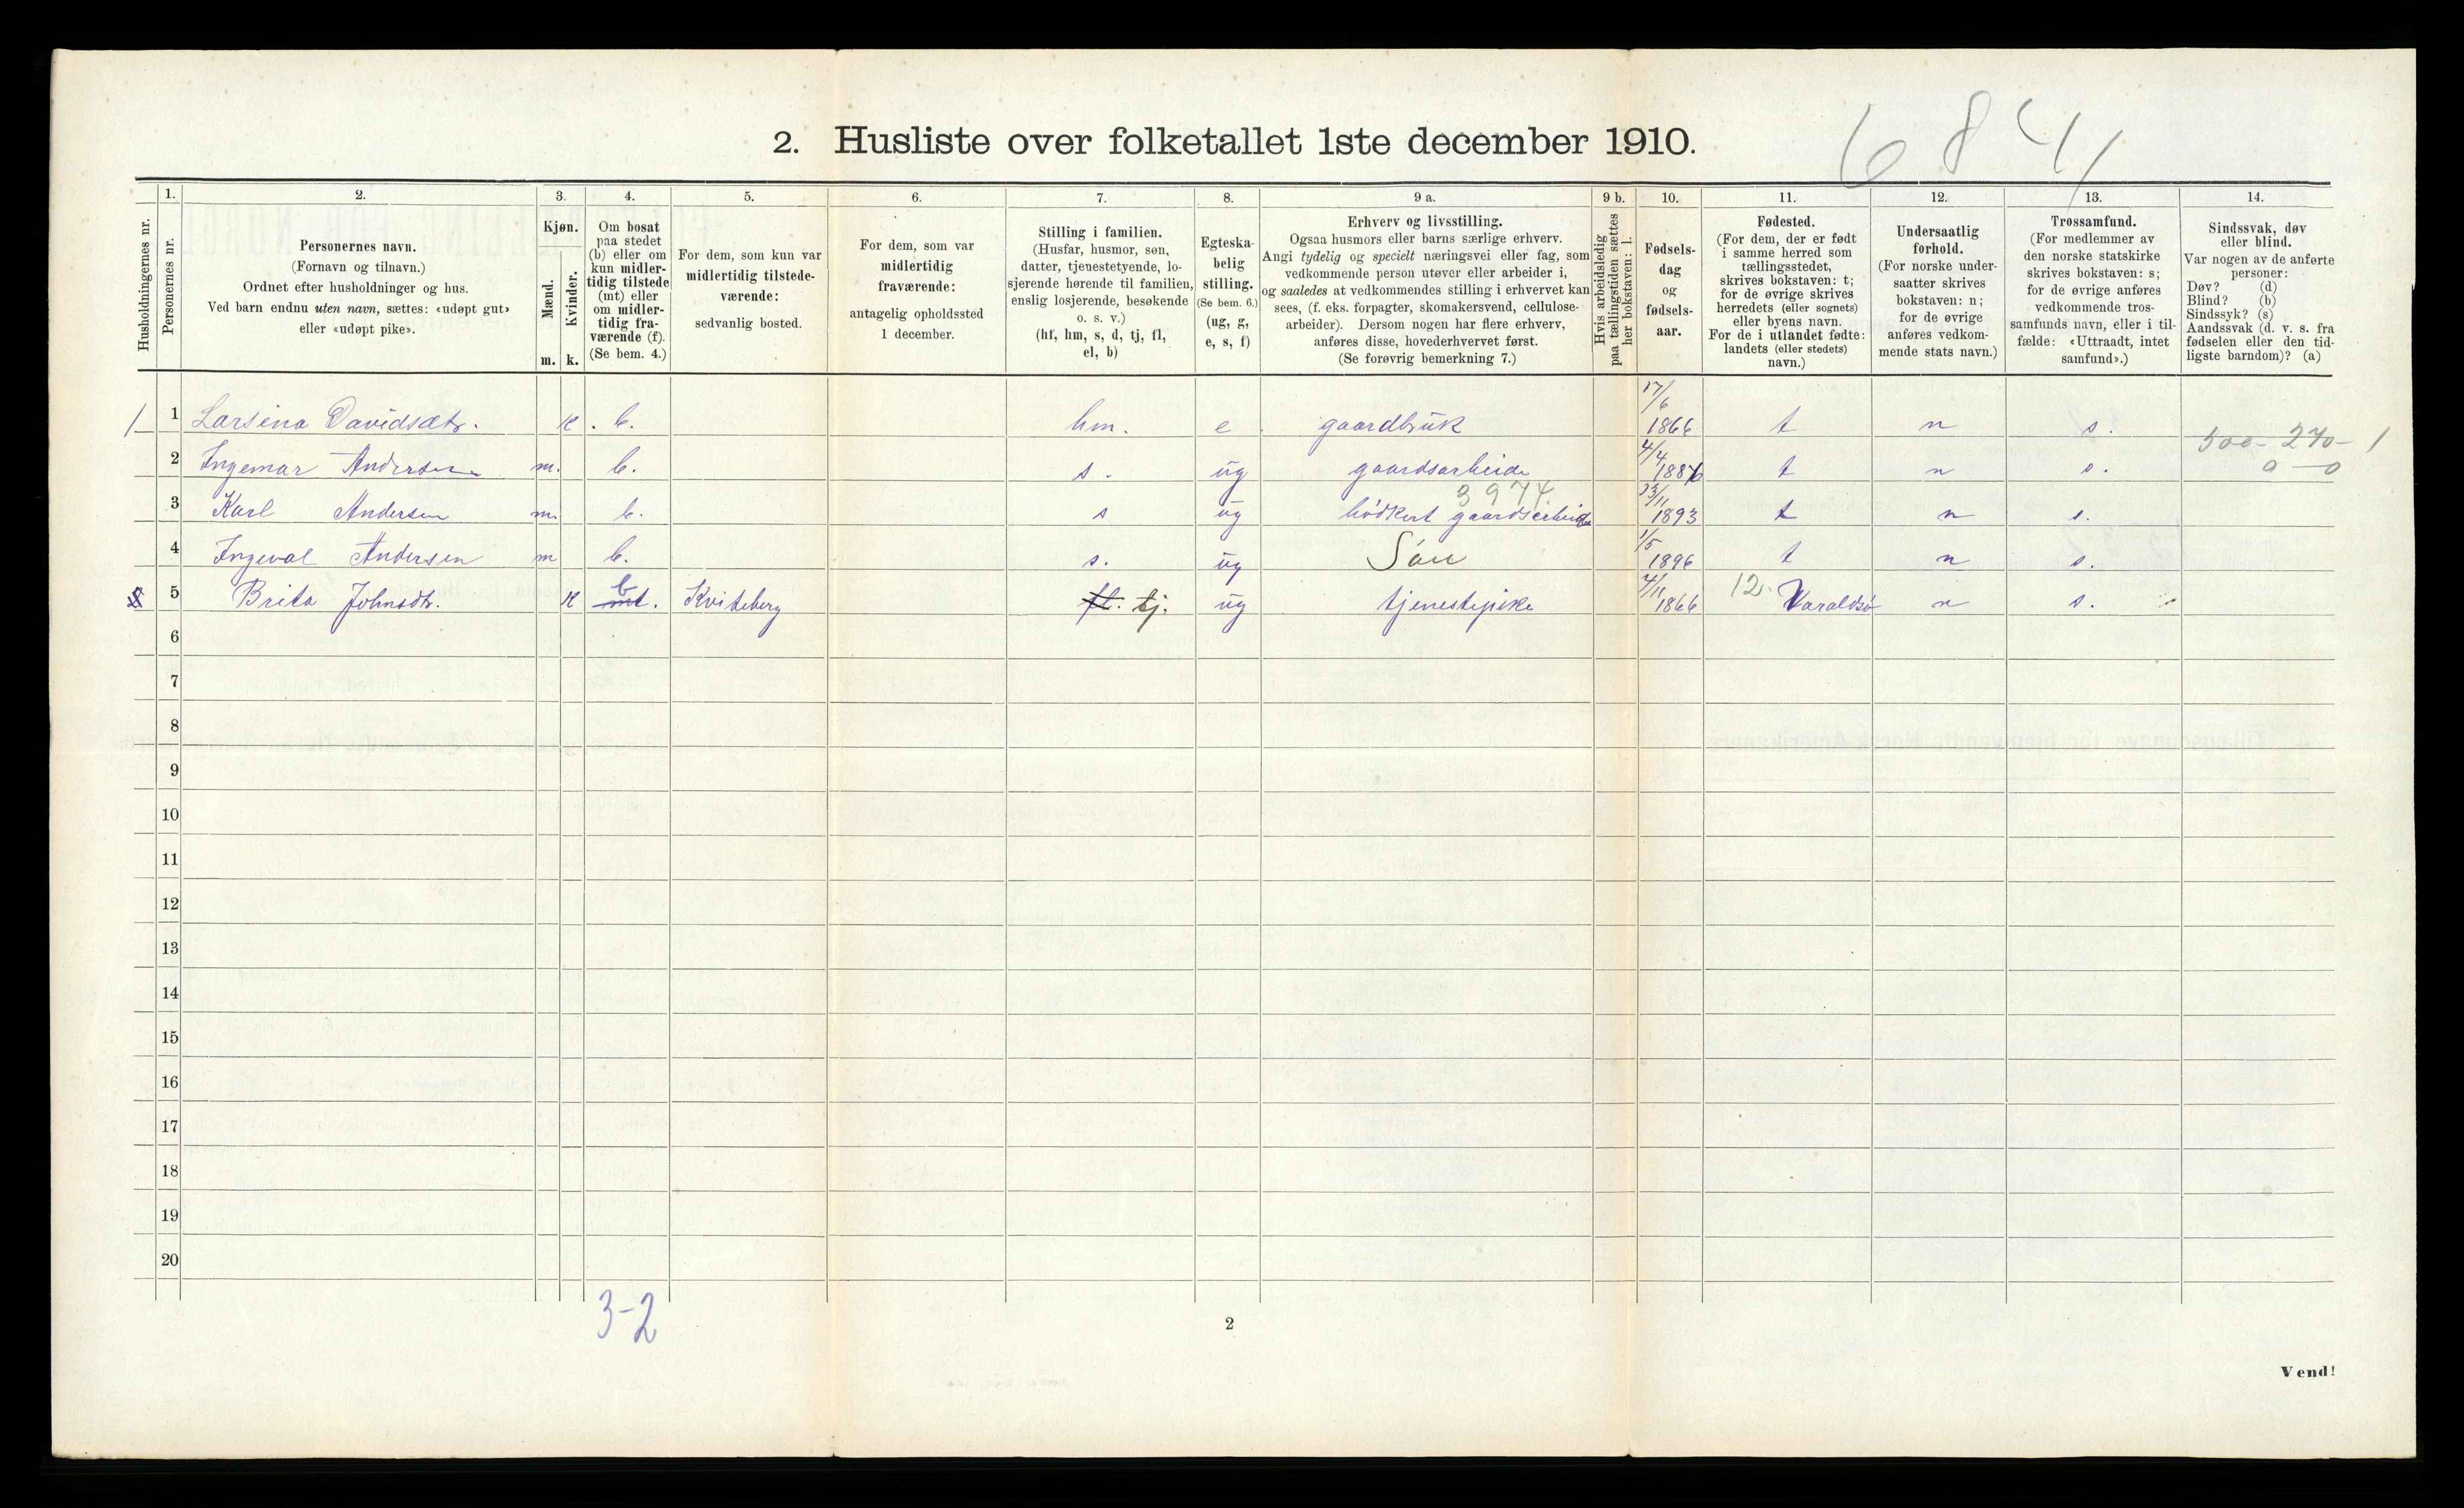 684
2. Husliste over folketallet 1ste december 1910.
Husholdningernes nr.
1.
Personernes nr.
2.
Personernes navn.
(Fornavn og tilnavn.)
Ordnet efter husholdninger og hus.
Ved barn endnu uten navn, sættes: «udøpt gut»
eller «udøpt pike».
3.
Kjøn.
Mænd.
Kvinder.
m. k.
4.
Om bosat
paa stedet
(b) eller om
kun midler-
tidig tilstede
(mt) eller
om midler-
tidig fra-
værende (f).
(Se bem. 4.)
5.
For dem, som kun var
midlertidig tilstede-
værende:
sedvanlig bosted.
6.
For dem, som var
midlertidig
fraværende:
antagelig opholdssted
1 december.
7.
Stilling i familien.
(Husfar, husmor, søn,
datter, tjenestetyende, lo-
sjerende hørende til familien,
enslig losjerende, besøkende
o. s. v.)
(hf, hm, s, d, tj, fl,
el, b)
8.
Egteska-
belig
stilling.
(Se bem. 6.)
(ug, g,
e, s, f)
9 a.
Erhverv og livsstilling.
Ogsaa husmors eller barns særlige erhverv.
Angi tydelig og specielt næringsvei eller fag, som
vedkommende person utøver eller arbeider i,
og saaledes at vedkommendes stilling i erhvervet kan
sees, (f. eks. forpagter, skomakersvend, cellulose-
arbeider). Dersom nogen har flere erhverv,
anføres disse, hovederhvervet først.
(Se forøvrig bemerkning 7.)
9 b.
Hvis arbeidsledig
paa tællingstiden sættes
her bokstaven: l.
10.
Fødsels-
dag
og
fødsels-
aar.
11.
Fødested.
(For dem, der er født
i samme herred som
tællingsstedet,
skrives bokstaven: t;
for de øvrige skrives
herredets (eller sognets)
eller byens navn.
For de i utlandet fødte:
landets (eller stedets)
navn.)
12.
Undersaatlig
forhold.
(For norske under-
saatter skrives
bokstaven: n;
for de øvrige
anføres vedkom-
mende stats navn.)
13.
Trossamfund.
(For medlemmer av
den norske statskirke
skrives bokstaven: s;
for de øvrige anføres
vedkommende tros-
samfunds navn, eller i til-
fælde: «Uttraadt, intet
samfund».)
14.
Sindssvak, døv
eller blind.
Var nogen av de anførte
personer:
Døv? (d)
Blind? (b)
Sindssyk? (s)
Aandssvak (d. v. s. fra
fødselen eller den tid-
ligste barndom)? (a)
1 1 Larsina Davidsdtr. k. b. hm. e gaardbruk 17/6 1866 t n s. 500- 270- 1
2 Ingemar Andersen m. b. s. ug gaardsarbeide 4/4 1886 t n s. 0-0
3974
3 Karl Andersen m. b. s ug bödkert gaardsarbeide 23/11 1893 t n s.
4 Ingeval Andersen m b. s. ug Sön 1/5 1896 t n s.
5 Brita Johnsdtr. k b mt. Kviteberg fl. tj. ug tjenestepike 4/11 1866 12. Varaldsö n s.
6
7
8
9
10
11
12
13
14
15
16
17
18
19
20
3-2
2
Vend!